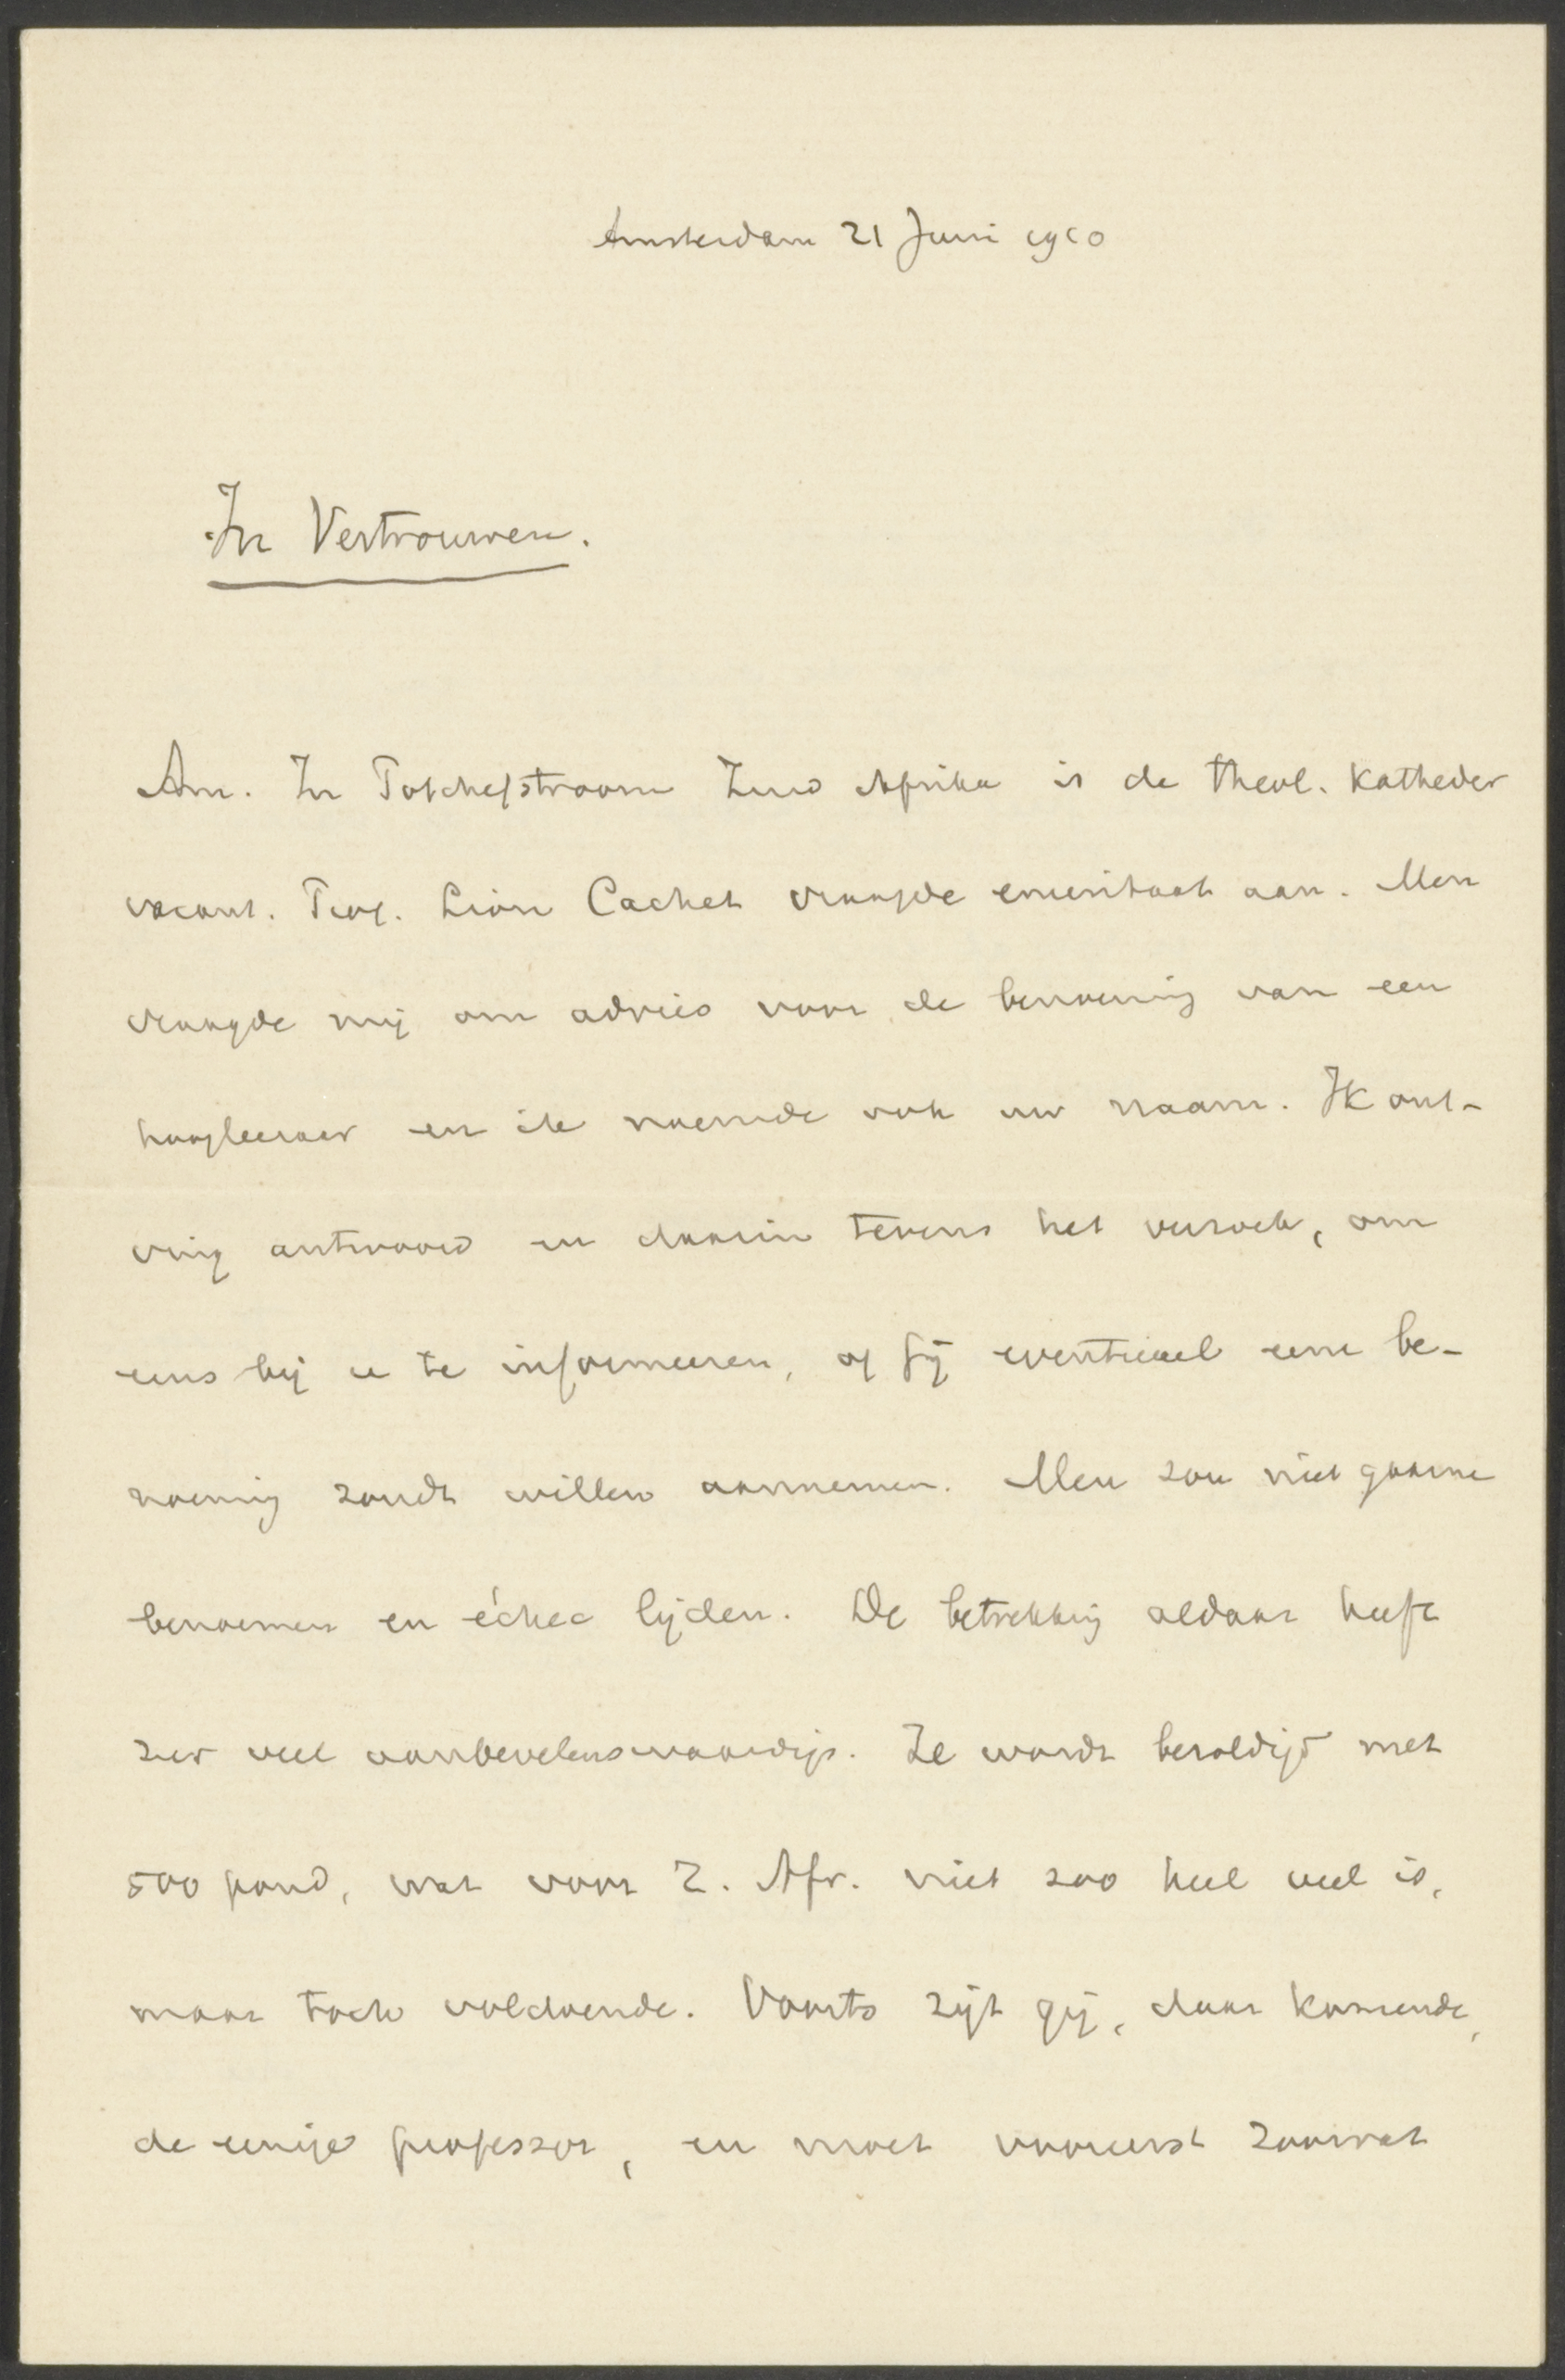 Amsterdam 21 Juni 1910
In Vertrouwen.
Am. In Potchefstroom Zuid Afrika is de theol. Katheder
vacant. Prof. Lion Cachet vraagde emeritaat aan. Men
vraagde mij om advies voor de benoeming van een
hoogleeraar en ik noemde ook uw naam. Ik ont-
ving antwoord en daarin tevens het verzoek, om
eens bij u te informeeren, of gij eventueel eene be-
noeming zoudt willen aannemen. Men zou niet gaarne
benoemen en échec lijden. De betrekking aldaar heeft
zeer veel aanbevelenswaardigs. Ze wordt bezoldigd met
500 pond, wat voor Z. Afr. niet zoo heel veel is,
maar toch voldoende. Voorts zijt gij, daar komende,
de eenige professor, en moet vooreerst zoowat